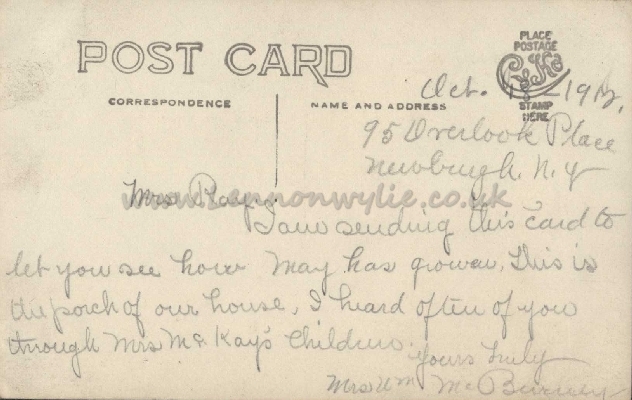 POST CARD
PLACE
POSTAGE
CYKO
STAMP
HERE
CORRESPONDENCE
NAME AND ADDRESS
Oct. 13 - 1912,
95 Overlook Place
Newburgh. N. Y
Mrs
www.Lennonwylie.co.uk
I am sending this card to
let you see how May has grown, This is
the porch of our house, I heard often of you
through Mrs McKay's Children.
Yours Truly
Mrs Wm McBurney